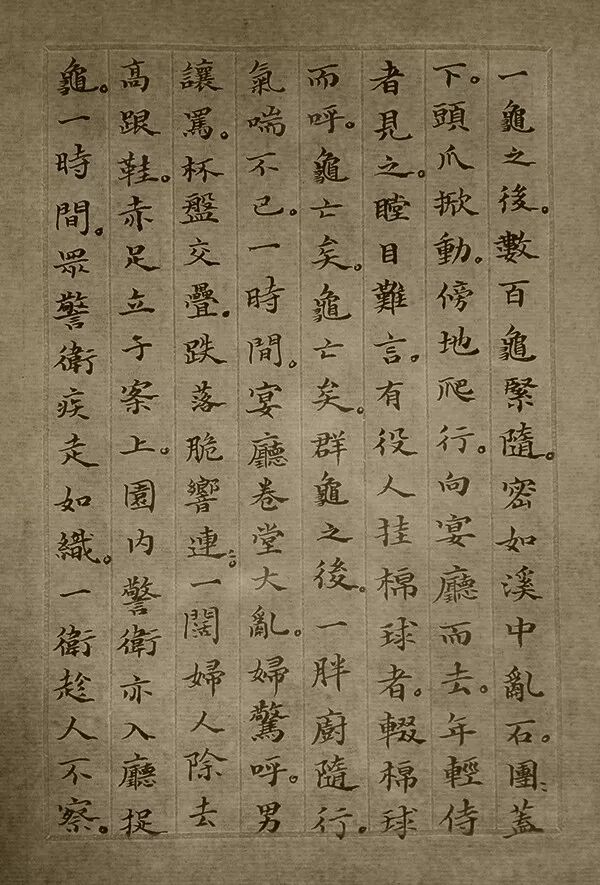 一龜之後。數百龜緊隨。密如溪中亂石。團〻蓋
下。頭爪掀動。傍地爬行。向宴廳而去。年輕侍
者見之。瞠目難言。有役人挂棉球者。輟棉球
而呼。龜亡矣。龜亡矣。群龜之後。一胖廚隨行。
氣喘不已。一時間。宴廳卷堂大亂。婦驚呼。男
讓罵。杯盤交疊。跌落脆響連〻。一闊婦人除去
高跟鞋。赤足立于案上。園内警衛亦入廳捉
龜。一時間。眾警衛疾走如織。一衛趁人不察。